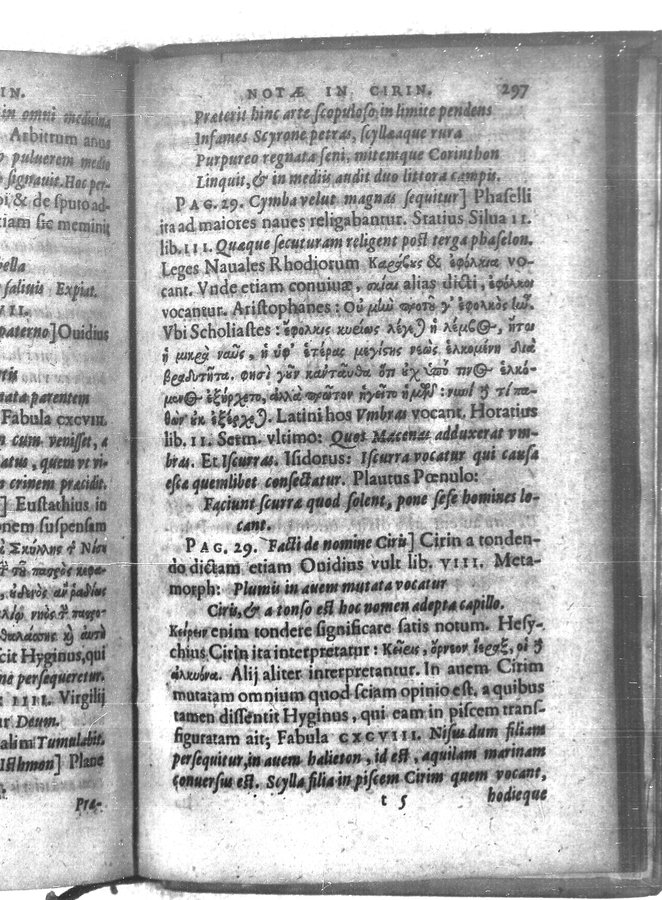 IN.
in omni medicina
Arbitrum anus
puluerem medio
signauit. Hoc per-
& de sputo ad-
tiam sic meminit
saliuis Expiat.
VII.
paterno] Ouidius
nata parentem
Fabula CXCVIII.
cum venisset, a
quem vt vi-
crinem præcidit.
] Eustathius in
onem suspensam
Hyginus, qui
ne persequeretur.
IIII. Virgilij
ur Deum.
alim Tumulabit.
Isthmon] Plane
Præ-
NOTÆ IN CIRIN. 297
Præterit hinc arte scopuloso in limite pendens
Infames Scyrone petras, scyllæaque rura
Purpureo regnata seni, mitemque Corinthon
Linquit, & in mediis audit duo littora campis.
PAG. 29. Cymba velut magnas sequitur] Phaselli
ita ad maiores naues religabantur. Statius Silua II.
lib. III. Quaque secuturam religent post terga phaselon.
Leges Nauales Rhodiorum & ἐφόλκια vo-
cant. Vnde etiam conuiuæ, σκιαι alias dicti, ἐφόλκοι
vocantur. Aristophanes: Οὐ μὴν πρὸ τοῦ γ' ἐφολκὸς ἦν.
Vbi Scholiastes: ἐφολκὶς κυρίως λέγεται ἡ λέμβος, ἤτοι
ἡ μικρὰ ναῦς, ἡ ὑφ' ἑτέρας μεγίστης νεὼς ἑλκομένη διὰ
βραδυτῆτα. φησὶ γοῦν κἀνταῦθα ὅτι οὐχ ὑπό τινος ἑλκό-
μενος ἐξήρχετο, ἀλλὰ πρῶτον ἡγεῖτο ἡμῖν: νυνὶ τί πα-
θὼν οὐκ ἐξέρχεται. Latini hos Vmbras vocant. Horatius
lib. II. Serm. vltimo: Quos Mæcenas adduxerat vm-
bras. Et Iscurras. Isidorus: Iscurra vocatur qui causa
esca quemlibet consectatur. Plautus Pœnulo:
Faciunt scurra quod solent, pone sese homines lo-
cant.
PAG. 29. Facti de nomine Ciris] Cirin a tonden-
do dictam etiam Ouidius vult lib. VIII. Meta-
morph: Plumis in auem mutata vocatur
Ciris, & a tonso est hoc nomen adepta capillo.
Κείρειν enim tondere significare satis notum. Hesy-
chius Cirin ita interpretatur: Κεῖρις, ὄρνεον, ἱέραξ, οἱ δὲ
ἀλκυόνα. Alij aliter interpretantur. In auem Cirim
mutatam omnium quod sciam opinio est, a quibus
tamen dissentit Hyginus, qui eam in piscem trans-
figuratam ait, Fabula CXCVIII. Nisus dum filiam
persequitur, in auem halieton, id est, aquilam marinam
conuersus est. Scylla filia in piscem Cirim quem vocant,
t 5 hodieque